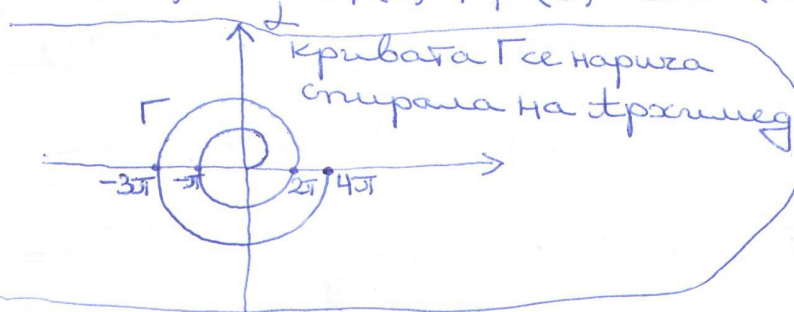 кривата Г се нарича
спирала на Архимед
Г
-3π -π 2π 4π